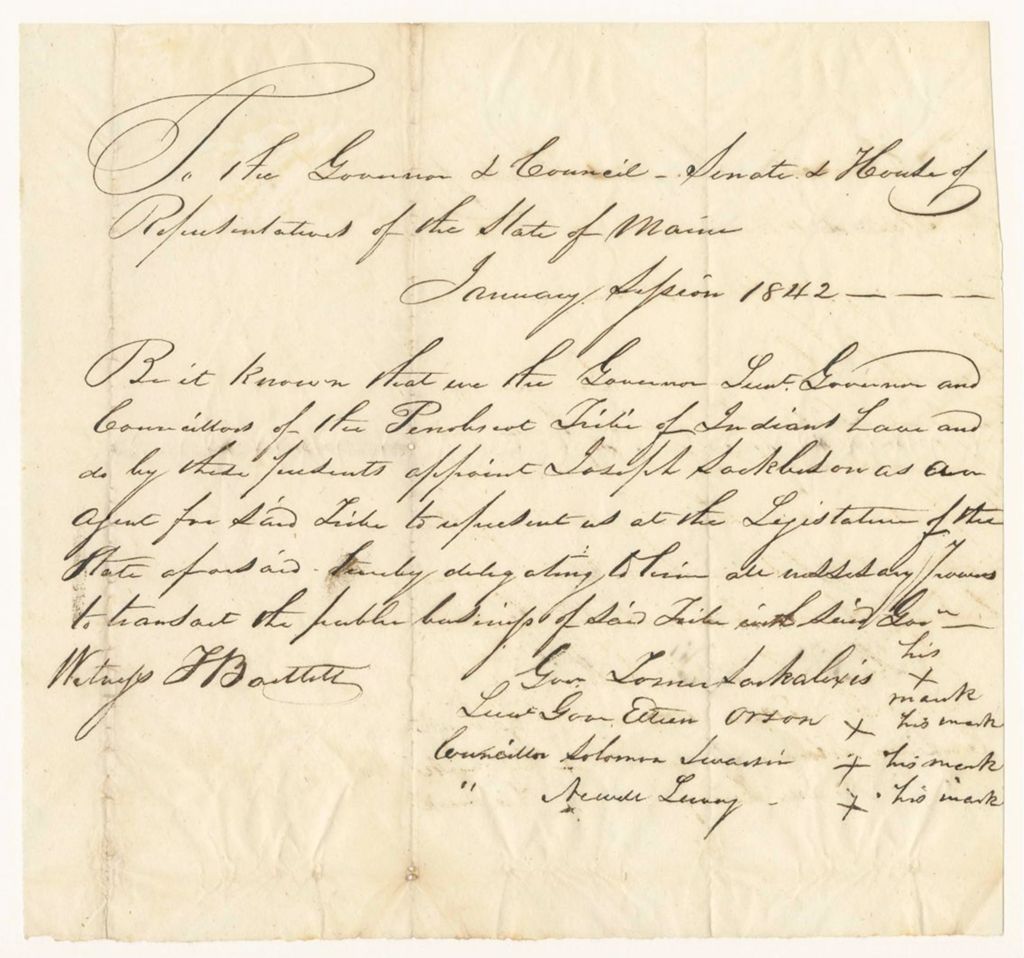 To the Governor & Council - Senate & House of
Representatives of the State of Maine
January Session 1842 — — —
Be it known that we the Governor Lieut. Governor and
Councillors of the Penobscot Tribe of Indians have and
do by these presents appoint Joseph Sockbeson as an
agent for said Tribe to represent us at the Legislature of the
State aforesaid hereby delegating to him all nessesary Powers
to transact the public business of said Tribe with said Govn —
Witness F Bartlett
Gov. Tomer Sockalixis his x mark
Lieut Gov. Etien Orson x his mark
Councillor Solomon Swassin x his mark
" Newell x his mark